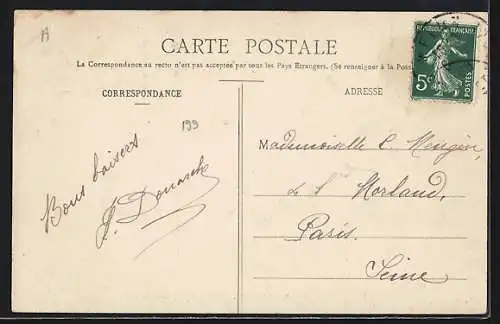 A
CARTE POSTALE
La Correspondance au recto n'est pas acceptée par tous les Pays Etrangers. (Se renseigner à la Poste
CORRESPONDANCE
ADRESSE
REPUBLIQUE FRANÇAISE
5c
POSTES
199
Bons baisers
Mademoiselle
Morland,
Paris.
Seine